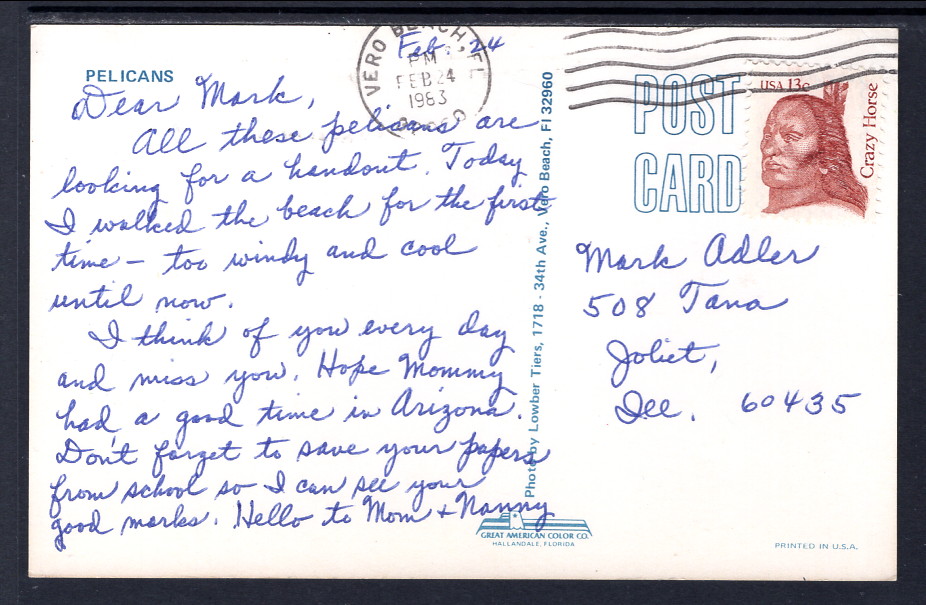 Feb. 24
VERO BEACH, FL
PM
FEB 24
1983
PELICANS
Dear Mark,
All these pelicans are
looking for a handout. Today
I walked the beach for the first
time – too windy and cool
until now.
I think of you every day
and miss you. Hope Mommy
had a good time in Arizona.
Don't forget to save your papers
from school so I can see your
good marks. Hello to Mom + Nanny
Photo by Lowber Tiers, 1718 - 34th Ave., Vero Beach, Fl 32960
GREAT AMERICAN COLOR CO.
HALLANDALE, FLORIDA
POST
CARD
USA 13c
Crazy Horse
Mark Adler
508 Tana
Joliet,
Ill. 60435
PRINTED IN U.S.A.